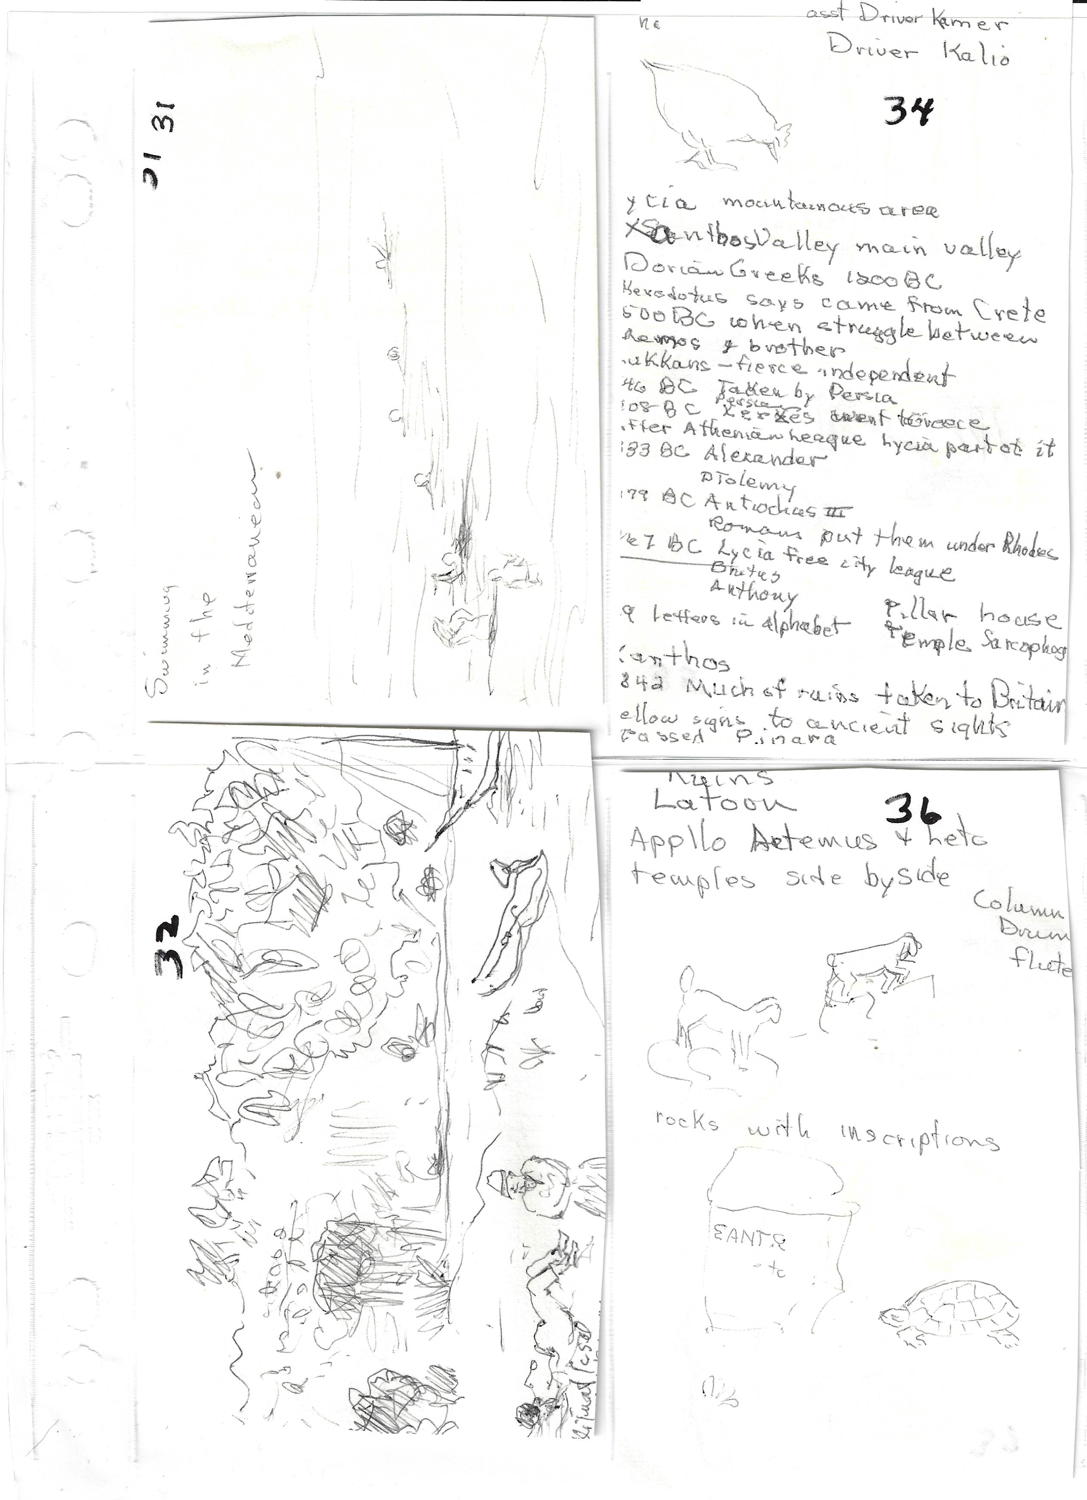 31 31
Swimming
in the
Medderranean
asst Driver Kamer
Driver Kalio
34
ycia mountainous area
Xsanthos Valley main valley
Dorian Greeks 1200 BC
Herodotus says came from Crete
500 BC when struggle between
& brother
ukkans - fierce independent
46 BC Taken by Persia
Persia
08 BC Xerxes went to Greece
ffter Athenian League Lycia part of it
33 BC Alexander
Ptolemy
79 BC Antiochus III
Romans put them under Rhodes
67 BC Lycia free city league
Brutus
Anthony
9 letters in alphabet
Pillar house
Temple Sarcophag
anthos
842 Much of ruins taken to Britain
ellow signs to ancient sights
Passed Pinara
32
Ruins
Latoon
36
Appllo Artemus & Leto
temples side by side
Column
Drum
flute
rocks with inscriptions